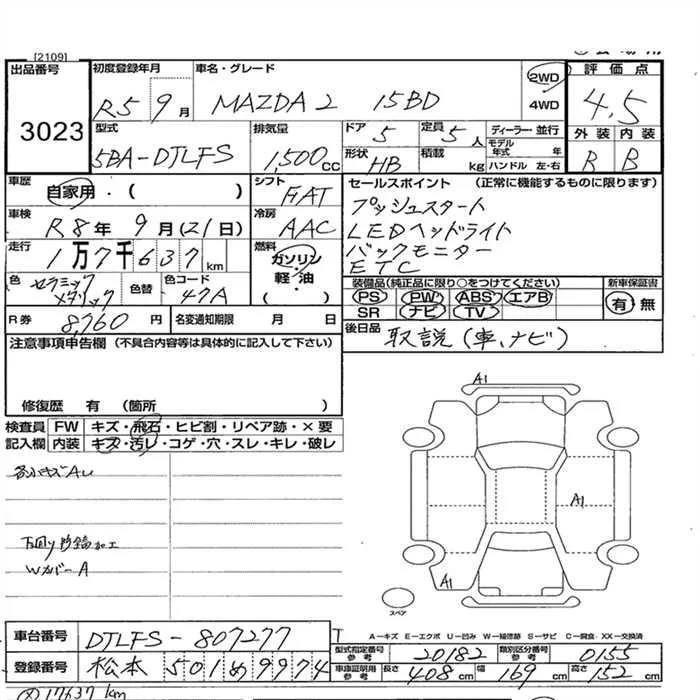 [2109]
出品番号
3023
初度登録年月
R5 9月
車名・グレード
MAZDA2 15BD
2WD
4WD
評価点
4.5
外装 内装
R B
型式
5BA-DJLFS
排気量
1,500cc
ドア 5
定員 5人
形状 HB
積載 kg
ディーラー・並行
モデル年式 年
ハンドル 左・右
車歴
自家用・( )
シフト
FAT
車検
R8年 9月(21日)
冷房
AAC
走行
1万7千637km
燃料
ガソリン・
軽・油
・( )
色
セラミックメタリック
色替
色コード
47A
R券 8,760円
名変通知期限 月 日
セールスポイント (正常に機能するものに限ります)
プッシュスタート
LEDヘッドライト
バックモニター
ETC
装備品(純正品に限り○をつけてください)
PS PW ABS エアB
SR ナビ TV
新車保証書
有 無
後日品
取説(車、ナビ)
注意事項申告欄(不具合内容等は具体的に記入して下さい)
修復歴 有 (箇所 )
検査員記入欄
FW キズ・飛石・ヒビ割・リペア跡・×要
内装 キズ・汚レ・コゲ・穴・スレ・キレ・破レ
各小キズAU
下回り防錆加工
WカバーA
A1
A1
A1
スペア
A―キズ E―エクボ U―凹み W―補修跡 S―サビ C―腐食 XX―交換済
車台番号
DJLFS-807277
登録番号
松本 501め9974
型式指定番号参考 20182
類別区分番号参考 0155
車庫証明用参考 長さ 408cm 幅 169cm 高さ 152cm
17637km